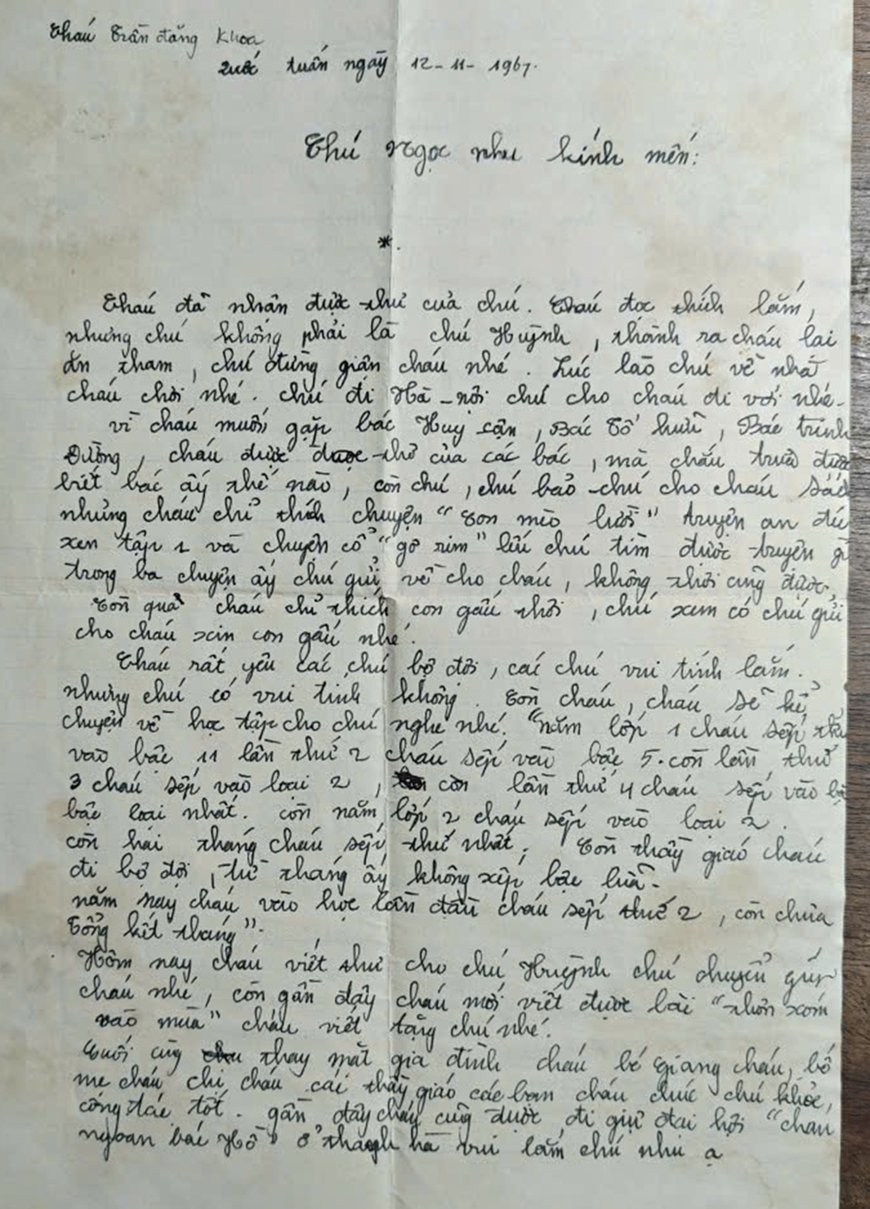 Cháu Trần đăng Khoa
Quốc tuấn ngày 12-11-1967.
Chú Ngọc nhu kính mến:
*.
Cháu đã nhận được thư của chú. Cháu đọc thích lắm,
nhưng chú không phải là chú Huỳnh, thành ra cháu lai
ăn tham, chú đừng giận cháu nhé. Lúc lào chú về nhà
cháu chơi nhé. chú đi Hà-nội chú cho cháu đi với nhé-
vì cháu muốn gặp bác Huy cận, Bác Tố hữu, Bác trinh
Đường, cháu được được thư của các bác, mà cháu trưa được
biết bác ấy thế nào, còn chú, chú bảo chú cho cháu sách
nhưng cháu chỉ thích chuyện "con mèo lười" truyện an đéc
xen tập 1 và chuyện cổ "gờ rim" lếu chú tìm được truyện gì
trong ba chuyện ấy chú gửi về cho cháu, không thôi cũng được,
Còn quà cháu chỉ thích con gấu thôi, chú xem có chú gửi
cho cháu xin con gấu nhé.
Cháu rất yêu các chú bộ đội, các chú vui tính lắm.
nhưng chú có vui tính không. Còn cháu, cháu sẽ kể
chuyện về học tập cho chú nghe nhé. "Năm lớp 1 cháu sếp
vào bậc 11 lần thứ 2 cháu sếp vào bậc 5. còn lần thứ
3 cháu sếp vào loại 2, còn lần thứ 4 cháu sếp vào
bậc loai nhất. còn năm lớp 2 cháu sếp vào loai 2.
còn hai tháng cháu sếp thứ nhất. Còn thầy giáo cháu
đi bộ đội, từ tháng ấy không xếp bậc lữa-
năm nay cháu vào học lần đầu cháu sếp thứ 2, còn chưa
tổng kết tháng".
Hôm nay cháu viết thư cho chú Huỳnh chú chuyển giúp
cháu nhé, còn gần đây cháu mới viết được bài "thôn xóm
vào mùa" cháu viết tặng chú nhé.
Cuối cùng thay mặt gia đình cháu bé Giang cháu, bố
mẹ cháu chi cháu các thầy giáo các bạn cháu chúc chú khỏe,
công tác tốt. gần đây cháu cũng được đi giự đai hội "cháu
ngoan bác Hồ" ở thanh hà vui lắm chú nhu ạ